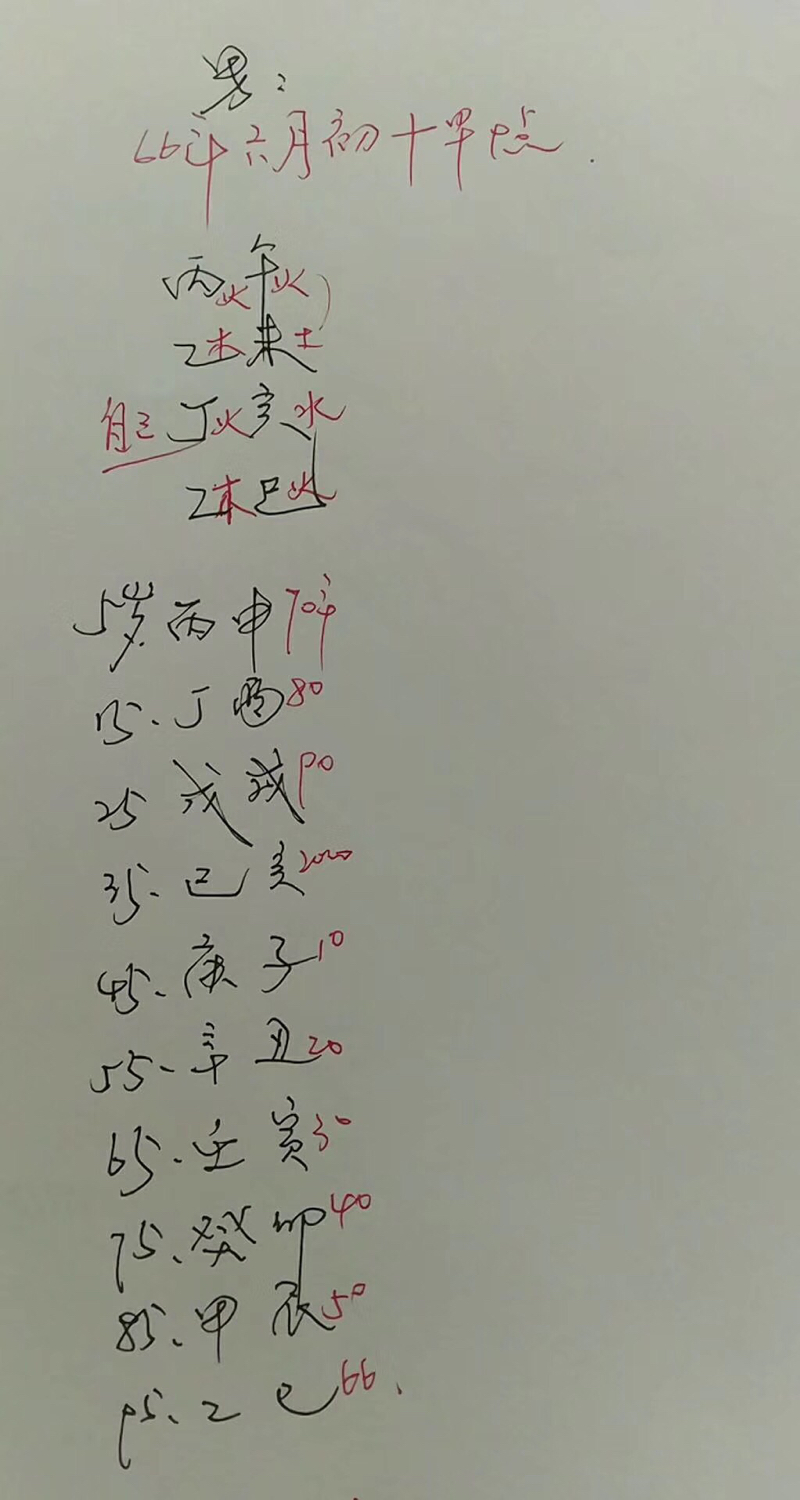 男：
66年六月初十早9点
丙火午火
乙木未土
自己丁火亥水
乙木巳火
5岁丙申70年
15.丁酉80
25戊戌90
35.己亥2000
45.庚子10
55.辛丑20
65.壬寅30
75.癸卯40
85.甲辰50
95.乙巳66